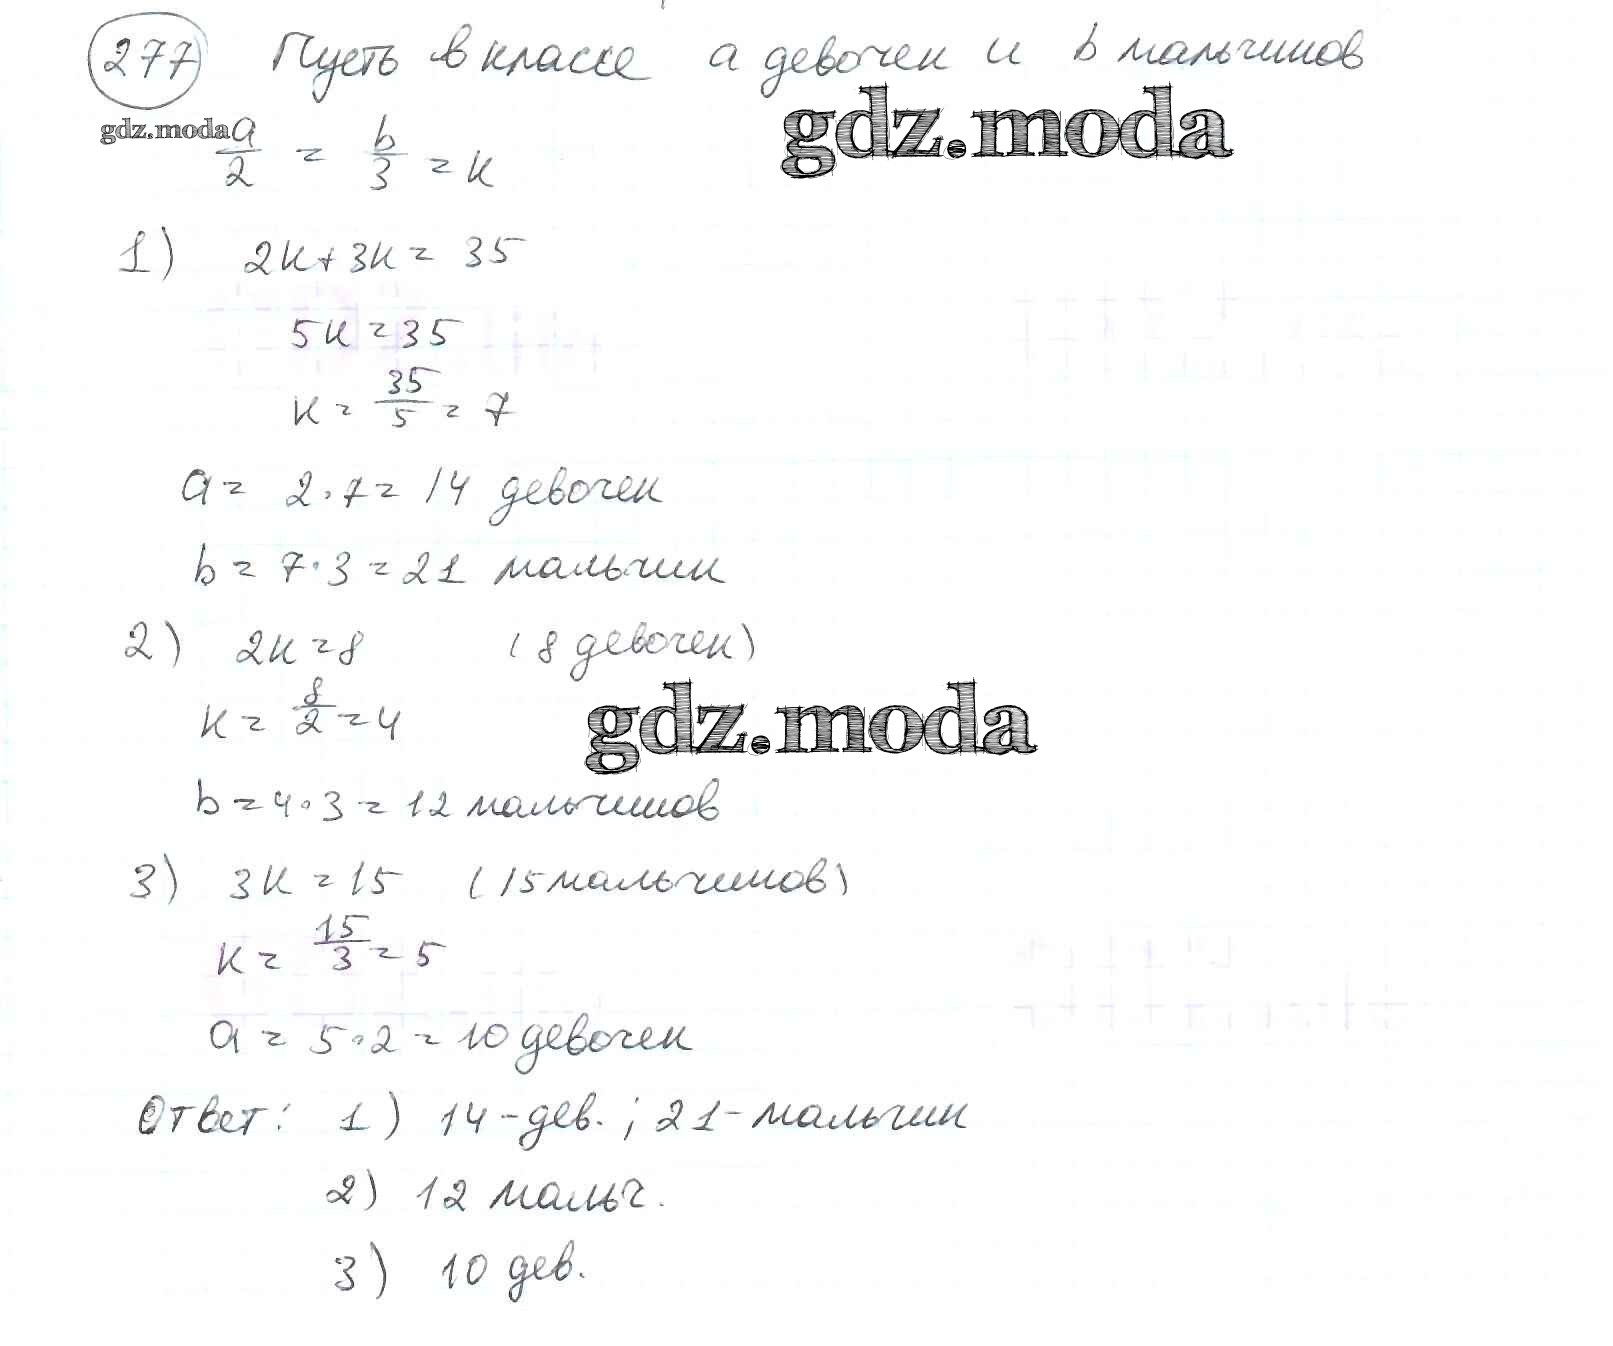 277 Пусть в классе a девочек и b мальчиков
gdz.moda
gdz.moda
a/2 = b/3 = k
1) 2k+3k = 35
5k = 35
k = 35/5 = 7
a = 2·7 = 14 девочек
b = 7·3 = 21 мальчик
2) 2k = 8 (8 девочек)
k = 8/2 = 4
gdz.moda
b = 4·3 = 12 мальчиков
3) 3k = 15 (15 мальчиков)
k = 15/3 = 5
a = 5·2 = 10 девочек
Ответ: 1) 14-дев.; 21-мальчик
2) 12 мальч.
3) 10 дев.